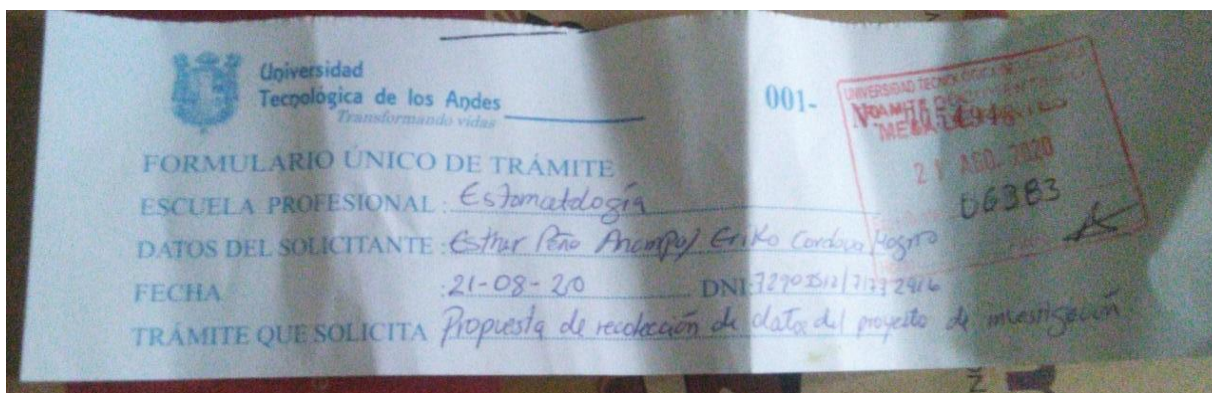 Universidad
Tecnológica de los Andes
Transformando vidas
001-
UNIVERSIDAD TECNOLÓGICA DE
MESA DE
21 AGO. 2020
06383
FORMULARIO ÚNICO DE TRÁMITE
ESCUELA PROFESIONAL : Estomatología
DATOS DEL SOLICITANTE : Esther Peña / Eriko Cordova
FECHA : 21-08-20 DNI:
TRÁMITE QUE SOLICITA Propuesta de recolección de datos del proyecto de investigación